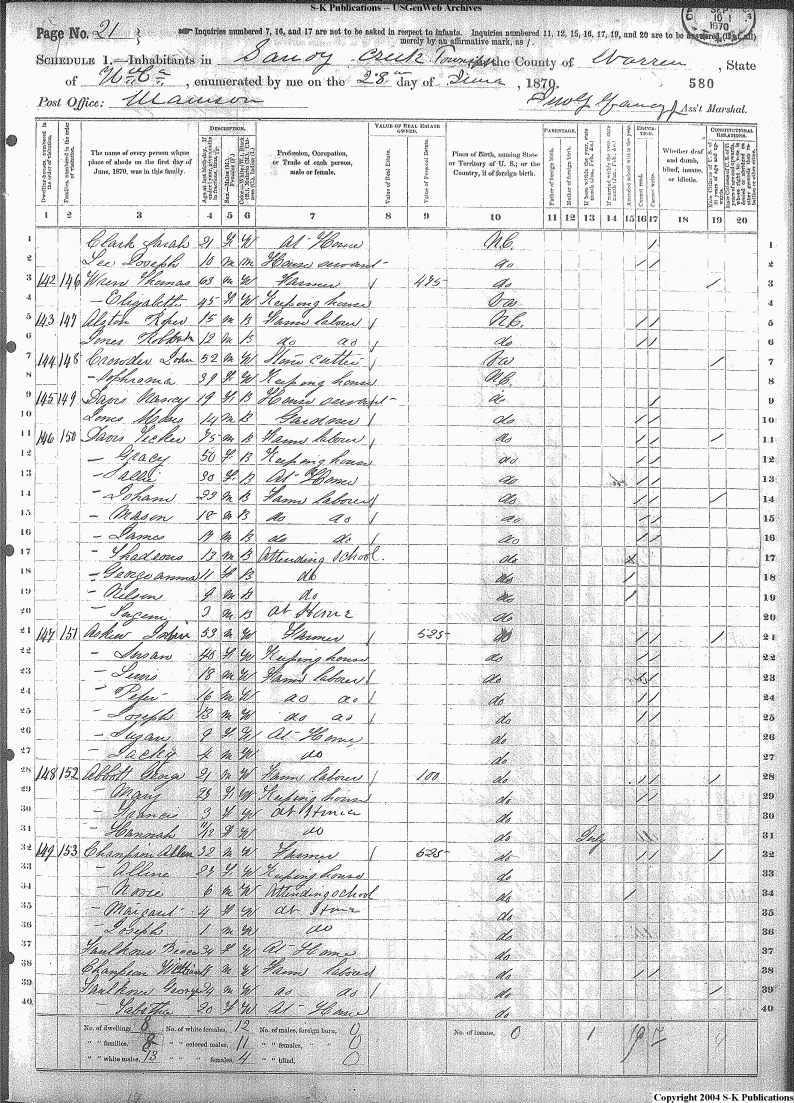 S-K Publications -- USGenWeb Archives
Page No. 21
Inquiries numbered 7, 16, and 17 are not to be asked in respect to infants. Inquiries numbered 11, 12, 15, 16, 17, 19, and 20 are to be answered (if at all) merely by an affirmative mark, as /.
SCHEDULE 1.—Inhabitants in Sandy Creek Township in the County of Warren, State
of N. Ca, enumerated by me on the 28th day of June, 1870. 580
Post Office: Manson Ass't Marshal.
SEPT 10 1870
DESCRIPTION. VALUE OF REAL ESTATE OWNED. PARENTAGE. EDUCATION. CONSTITUTIONAL RELATIONS.
Dwelling-houses, numbered in the order of visitation. Families, numbered in the order of visitation. The name of every person whose place of abode on the first day of June, 1870, was in this family. Profession, Occupation, or Trade of each person, male or female. Value of Real Estate. Value of Personal Estate. Place of Birth, naming State or Territory of U. S.; or the Country, if of foreign birth. Father of foreign birth. Mother of foreign birth. Attended school within the year. Cannot read. Cannot write. Whether deaf and dumb, blind, insane, or idiotic.
1 2 3 4 5 6 7 8 9 10 11 12 13 14 15 16 17 18 19 20
1 Clark Sarah 21 F W At Home N.C. / 1
2 Lee Joseph 10 M M House servant do / / 2
3 142 146 Wren Thomas 63 M W Farmer / 475 do / 3
4 – Elizabeth 45 F W Keeping house Va 4
5 143 147 Alston 15 M B Farm labour / N.C. / / 5
6 Jones 12 M B do do / do / / 6
7 144 148 Crowder John 52 M W Stone cutter / Va / 7
8 – 39 F W Keeping house N.C. 8
9 145 149 Davis Nancy 19 F B House servant do / 9
10 Jones Moses 14 M B Gardener / do / / 10
11 146 150 Davis Ticker 75 M B Farm labour / do / / / 11
12 – Gracy 50 F B Keeping house do / / 12
13 – Sallie 30 F B At Home do / / 13
14 – Isham 22 M B Farm labour / do / / / 14
15 – Mason 18 M B do do / do / / 15
16 – James 17 M B do do / do / / 16
17 – Thadeous 13 M B Attending school do 17
18 – Georgeanna 11 F B do do / 18
19 – Nelson 9 M B do do / 19
20 – 3 M B at Home do 20
21 147 151 Askew John 53 M W Farmer / 525 do / / / 21
22 – Susan 48 F W Keeping house do / / 22
23 – Lewis 18 M W Farm labour / do / 23
24 – Peter 16 M W do do / do / / 24
25 – Joseph 13 M W do do / do / / 25
26 – Sugan 9 F W At Home do 26
27 – 4 M W do do 27
28 148 152 Abbott George 21 M W Farm labour / 100 do / / / 28
29 – Mary 23 F W Keeping house do / / 29
30 – 3 F W at Home do 30
31 – Hannah F W do do July 31
32 149 153 Champion Allen 32 M W Farmer / 525 do / / / 32
33 – Alline 23 F W Keeping house do 33
34 – 6 M W Attending school do / 34
35 – Margaret 4 F W at Home do 35
36 – Joseph 1 M W do do 36
37 Faulkner F W At Home do 37
38 Champion William M W Farm labour do / / 38
39 Faulkner George M W do do / do / 39
40 Tabitha 20 F W At Home do 40
No. of dwellings, 8 No. of white females, 12 No. of males, foreign born, 0 No. of insane, 0 1
" " families, 8 " " colored males, 11 " " females, " " 0
" " white males, 13 " " " females, 4 " " blind, 0
Copyright 2004 S-K Publications